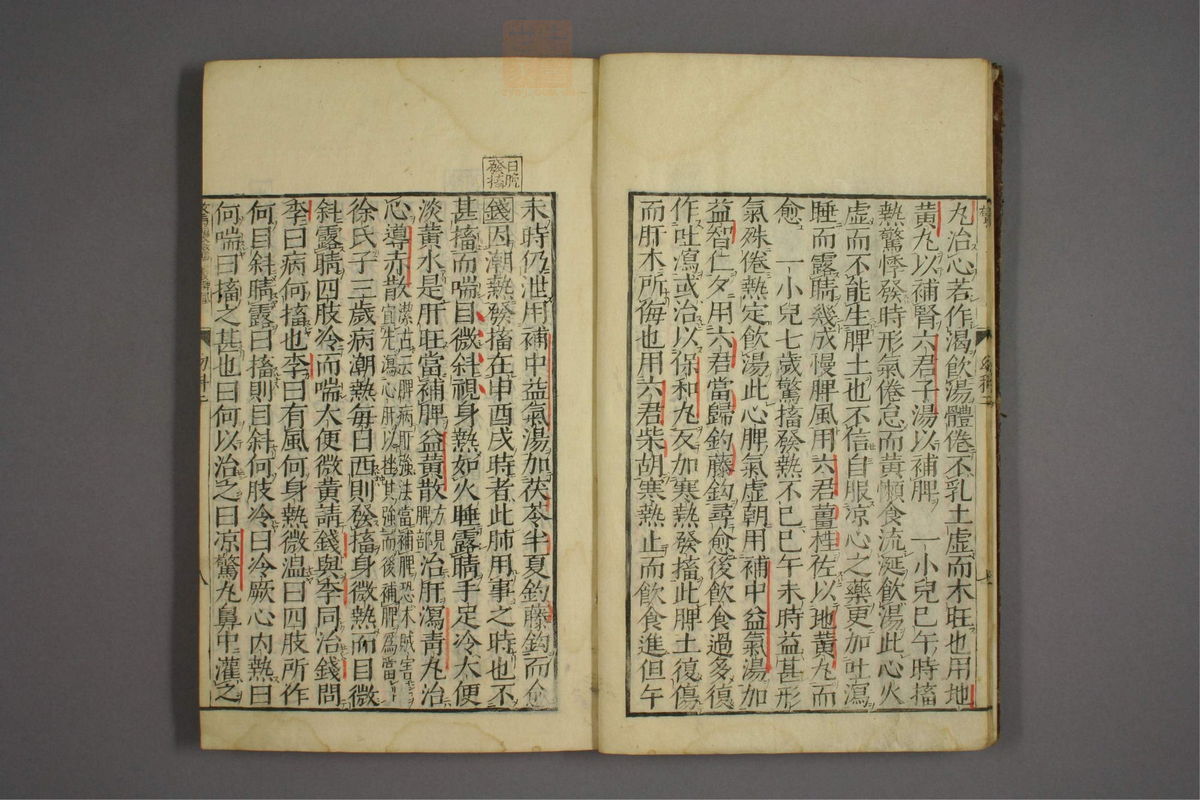 丸治心若作渴飲湯體倦不乳土虛而木旺也用地
黃丸以補腎六君子湯以補脾 一小兒巳午時搐
熱驚悸發時形氣倦怠而黃懶食流涎飲湯此心火
虛而不能生脾土也不信自服凉心之藥更加吐瀉
睡而露睛幾成慢脾風用六君薑桂佐以地黃丸而
愈 一小兒七歲驚搐發熱不已巳午未時益甚形
氣殊倦熱定飲湯此心脾氣虛朝用補中益氣湯加
益智仁夕用六君當歸釣藤鈎尋愈後飲食過多復
作吐瀉或治以保和丸反加寒熱發搐此脾土復傷
而肝木所侮也用六君柴胡寒熱止而飲食進但午
未時仍泄用補中益氣湯加茯苓半夏釣藤鈎而愈
日晩發搐
錢因潮熱發搐在申酉戌時者此肺用事之時也不
甚搐而喘目微斜視身熱如火睡露睛手足冷大便
淡黃水是肝旺當補脾益黃散方見脾部治肝瀉青丸治
心導赤散潔古云脾病肝強法當補脾恐木賊害宜先瀉心肝以挫其強而後補脾爲當
徐氏子三歲病潮熱每日西則發搐身微熱而目微
斜露睛四肢冷而喘大便微黃請錢與李同治錢問
李曰病何搐也李曰有風何身熱微溫曰四肢所作
何目斜睛露曰搐則目斜何肢冷曰冷厥心内熱曰
何喘曰搐之甚也曰何以治之曰凉驚丸鼻中灌之